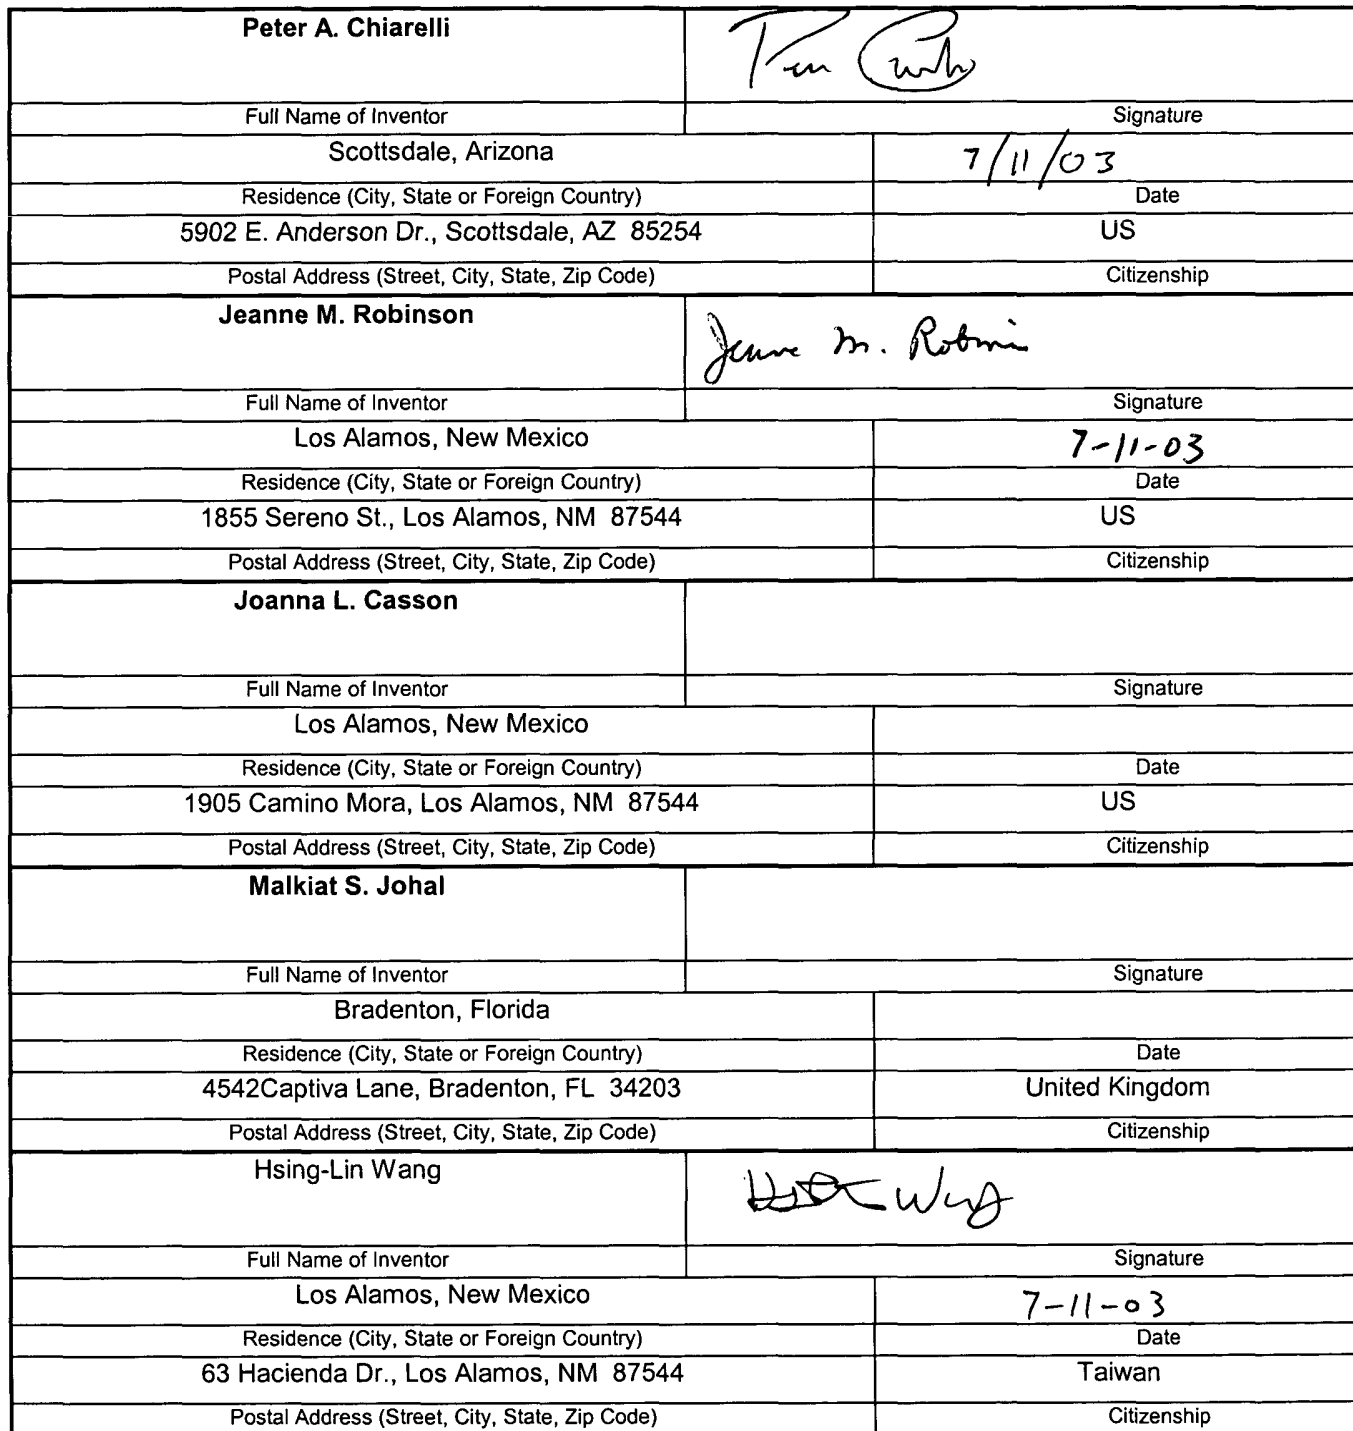 Peter A. Chiarelli
Full Name of Inventor Signature
Scottsdale, Arizona 7/11/03
Residence (City, State or Foreign Country) Date
5902 E. Anderson Dr., Scottsdale, AZ 85254 US
Postal Address (Street, City, State, Zip Code) Citizenship
Jeanne M. Robinson Jeanne M. Robinson
Full Name of Inventor Signature
Los Alamos, New Mexico 7-11-03
Residence (City, State or Foreign Country) Date
1855 Sereno St., Los Alamos, NM 87544 US
Postal Address (Street, City, State, Zip Code) Citizenship
Joanna L. Casson
Full Name of Inventor Signature
Los Alamos, New Mexico
Residence (City, State or Foreign Country) Date
1905 Camino Mora, Los Alamos, NM 87544 US
Postal Address (Street, City, State, Zip Code) Citizenship
Malkiat S. Johal
Full Name of Inventor Signature
Bradenton, Florida
Residence (City, State or Foreign Country) Date
4542Captiva Lane, Bradenton, FL 34203 United Kingdom
Postal Address (Street, City, State, Zip Code) Citizenship
Hsing-Lin Wang
Full Name of Inventor Signature
Los Alamos, New Mexico 7-11-03
Residence (City, State or Foreign Country) Date
63 Hacienda Dr., Los Alamos, NM 87544 Taiwan
Postal Address (Street, City, State, Zip Code) Citizenship